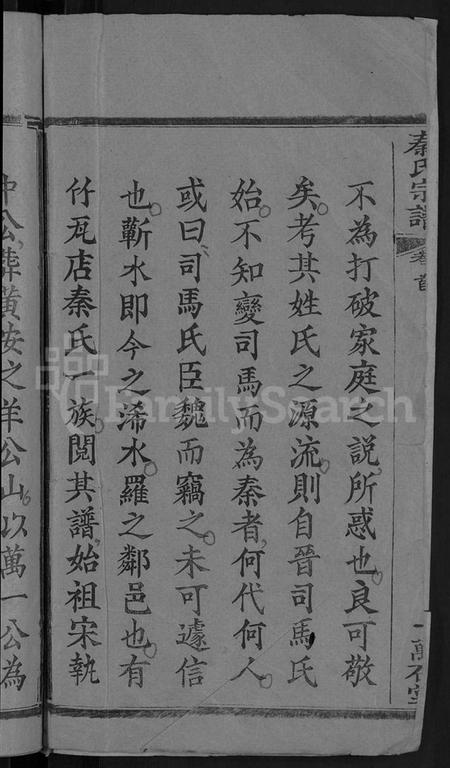 秦氏宗譜
卷首
不為打破家庭之說所惑也。良可敬
矣。考其姓氏之源流。則自晉司馬氏
始。不知變司馬而為秦者。何代何人。
或曰。司馬氏臣魏而竊之。未可遽信
也。蘄水即今之浠水。羅之鄰邑也。有
竹瓦店秦氏一族。閱其譜。始祖宋執
中公。葬黃安之羊公山。以萬一公為
FamilySearch